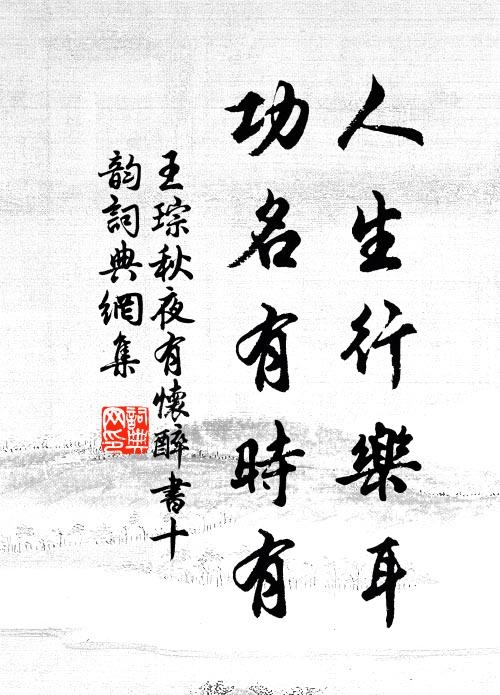 人生行樂耳
功名有時有
王琮秋夜有懷醉書十
韵詞典網集
詞典網印